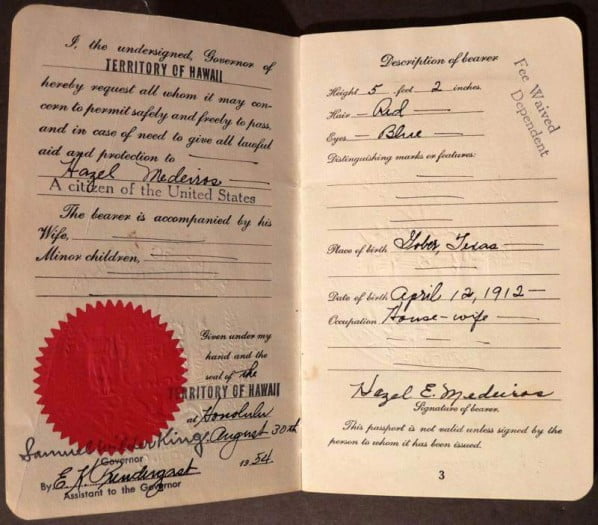 I, the undersigned, Governor of
TERRITORY OF HAWAII
hereby request all whom it may con-
cern to permit safely and freely to pass,
and in case of need to give all lawful
aid and protection to
Hazel Medeiros
A citizen of the United States
The bearer is accompanied by his
Wife,
Minor children,
Given under my
hand and the
seal of the
TERRITORY OF HAWAII
at Honolulu
August 30th
1954
Samuel Wilder King
Governor
By E. K. Fendergast
Assistant to the Governor
Description of bearer
Height 5 feet 2 inches.
Hair — Red —
Eyes — Blue —
Fee Waived
Dependent
Distinguishing marks or features:
Place of birth Gober, Texas —
Date of birth April 12, 1912 —
Occupation House-wife —
Hazel E. Medeiros
Signature of bearer.
This passport is not valid unless signed by the
person to whom it has been issued.
3